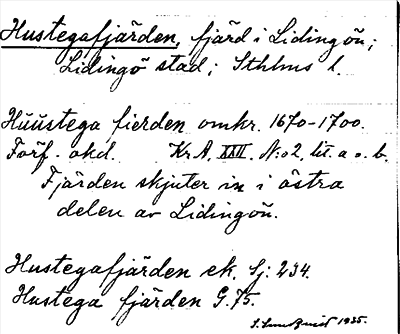 Hustegafjärden, fjärd i Lidingön;
Lidingö stad; Sthlms l.
Hüüstega fierden omkr. 1670-1700.
Förf. okd. Kr.A. XXIII. N:o 2, lit. a o. b.
Fjärden skjuter in i östra
delen av Lidingön.
Hustegafjärden ek. Sj: 234.
Hustega fjärden G. 75.
1935.